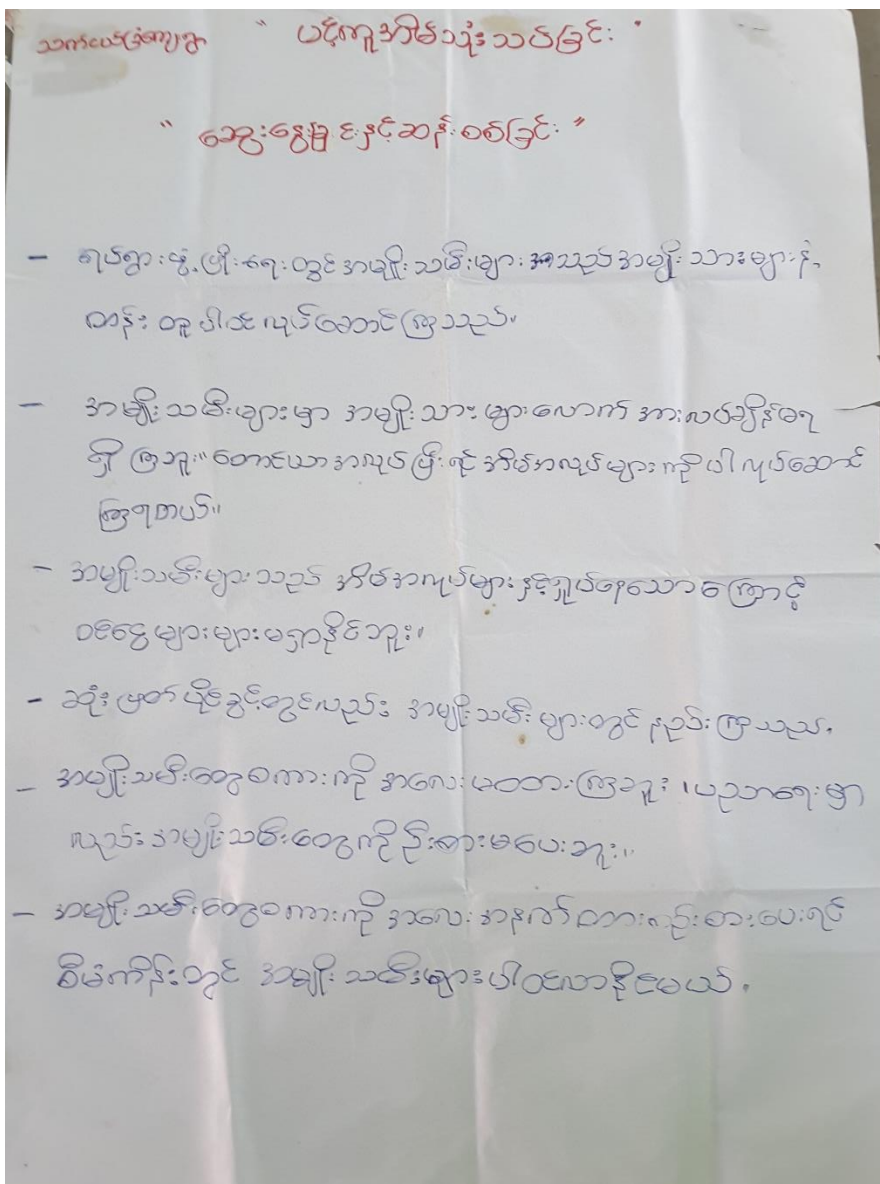 သက်ငယ်ခြုံကျေးရွာ " ပင့်ကူအိမ်သုံးသပ်ခြင်း "
" ဆွေးနွေးခြင်းနှင့်ဆန်းစစ်ခြင်း "
- ရပ်ရွာဖွံ့ဖြိုးရေးတွင် အမျိုးသမီးများ သည် အမျိုးသားများနဲ့
တန်းတူပါဝင်လုပ်ဆောင်ကြသည်။
- အမျိုးသမီးများမှာ အမျိုးသားများလောက် အားလပ်ချိန်မရ
ရှိကြဘူး။ တောင်ယာအလုပ်ပြီးရင် အိမ်အလုပ်များကိုပါလုပ်ဆောင်
ကြရတယ်။
- အမျိုးသမီးများသည် အိမ်အလုပ်များနှင့်ရှုပ်နေသောကြောင့်
ဝင်ငွေများများမရှာနိုင်ဘူး။
- ဆုံးဖြတ်ပိုင်ခွင့်တွင်လည်း အမျိုးသမီးများတွင် နည်းကြသည်။
- အမျိုးသမီးတွေစကားကို အလေးမထားကြဘူး ၊ ပညာရေးမှာ
လည်း အမျိုးသမီးတွေကို ဦးစားမပေးဘူး။
- အမျိုးသမီးတွေစကားကို အလေးအနက်ထား ဦးစားပေးရင်
စီမံကိန်းတွင် အမျိုးသမီးများပါဝင်လာနိုင်မယ်။